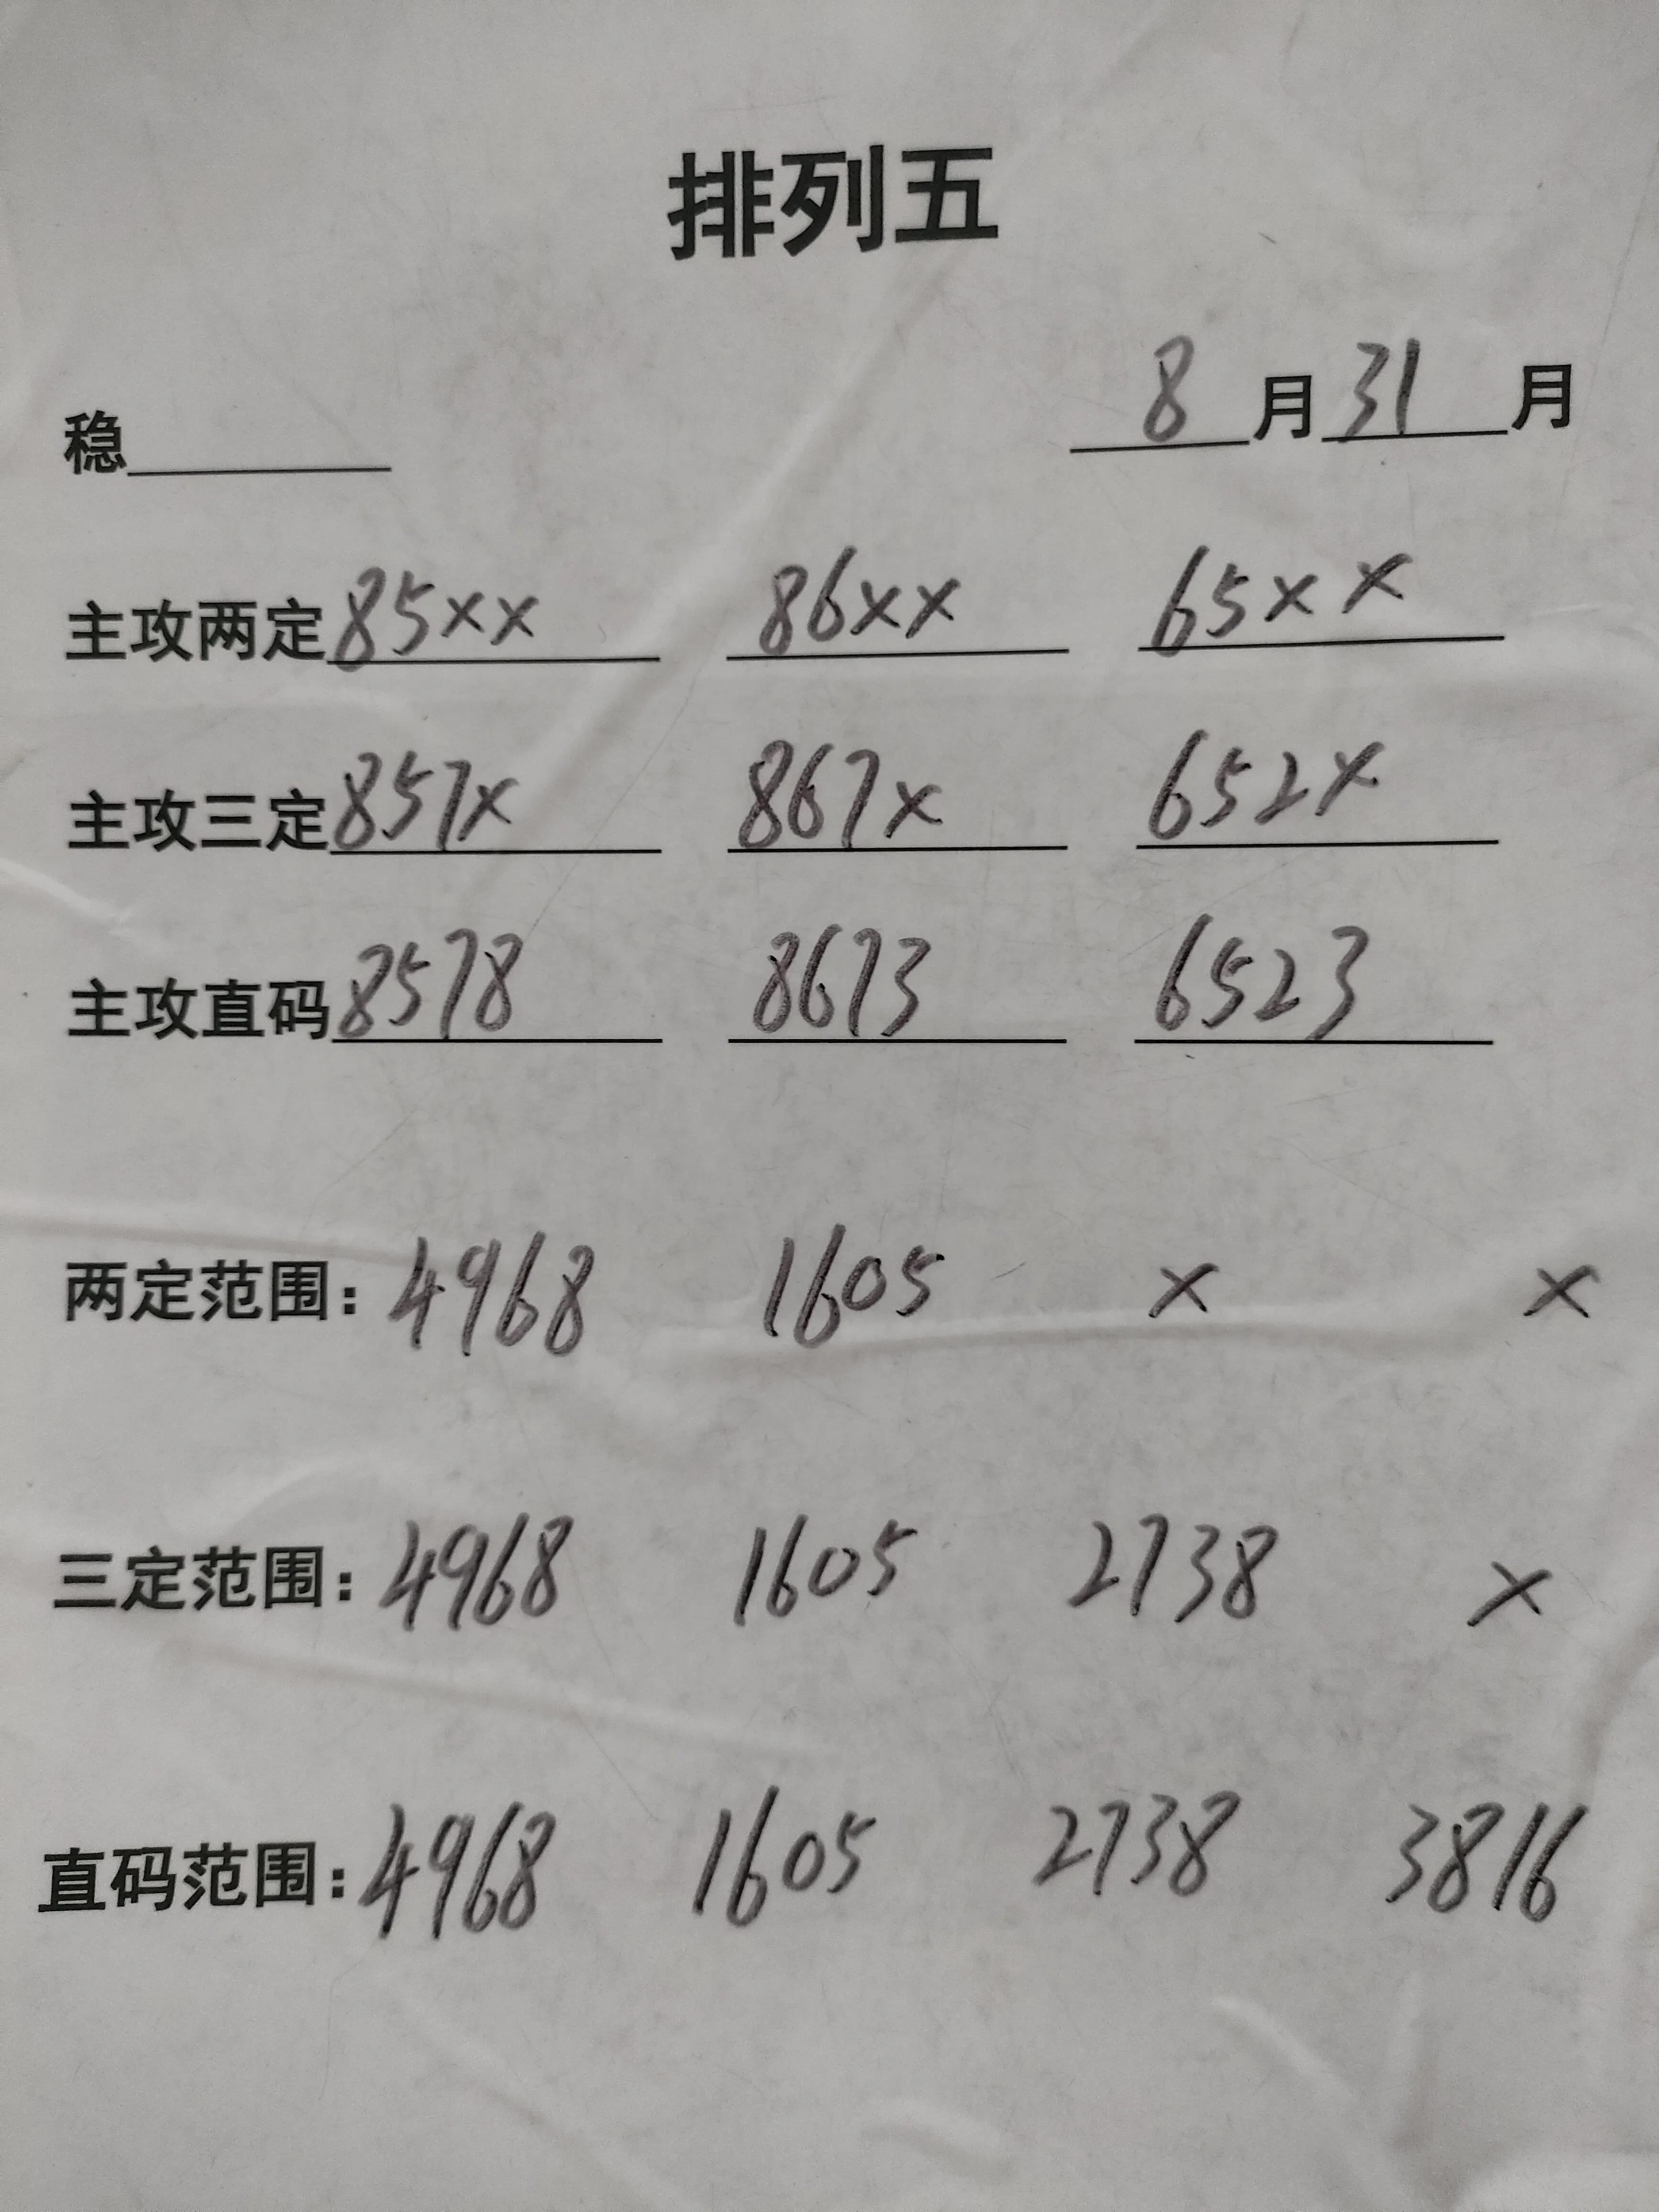 排列五
稳 8月31月
主攻两定85×× 86×× 65××
主攻三定857× 867× 652×
主攻直码8578 8673 6523
两定范围：4968 1605 × ×
三定范围：4968 1605 2738 ×
直码范围：4968 1605 2738 3816